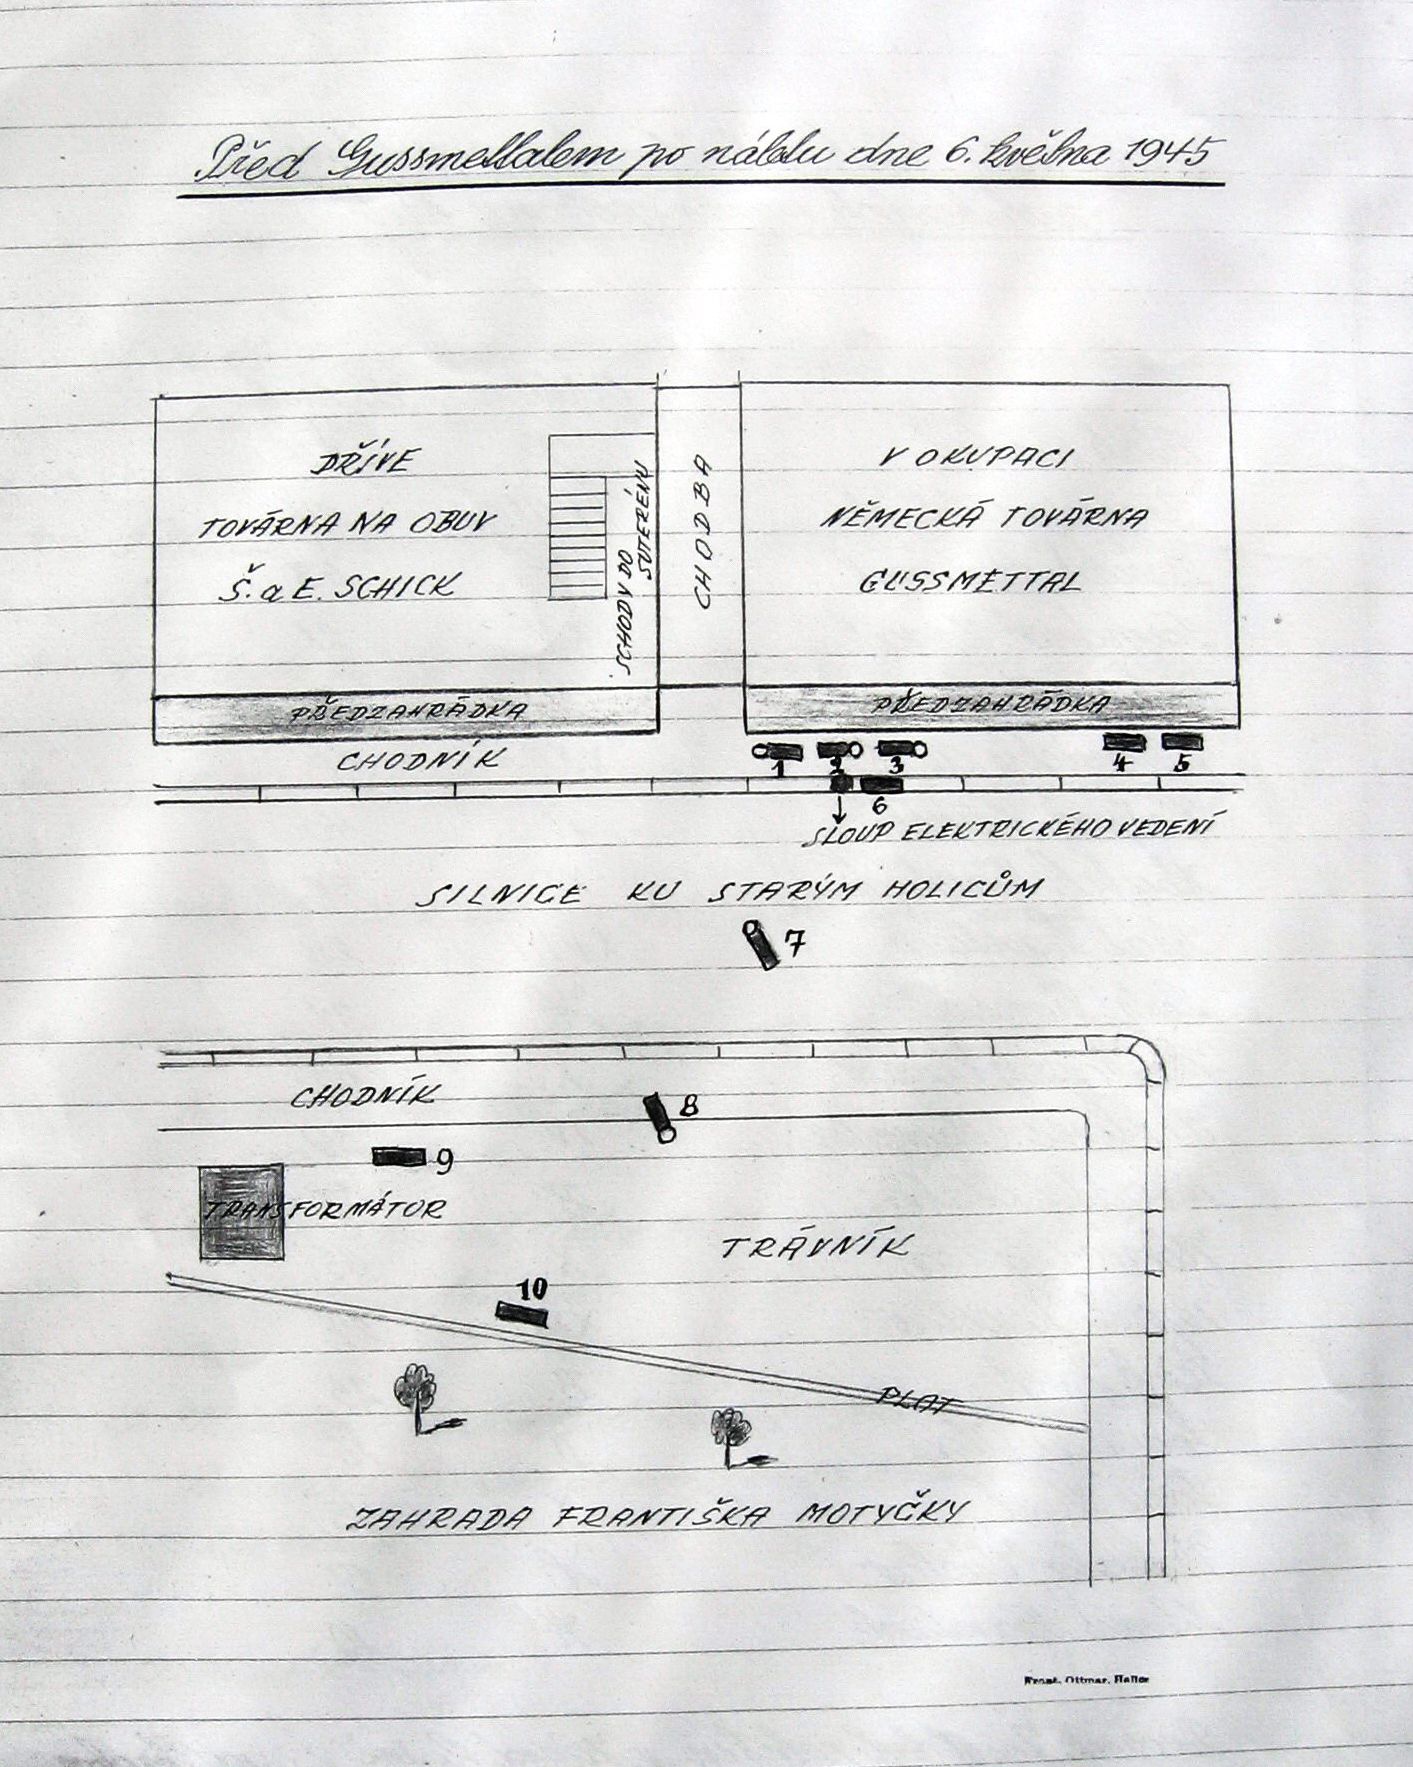 Před Gussmettalem po náletu dne 6. května 1945
DŘÍVE
TOVÁRNA NA OBUV
Š. a E. SCHICK
SCHODY DO
SUTERÉNU
CHODBA
V OKUPACI
NĚMECKÁ TOVÁRNA
GUSSMETTAL
PŘEDZAHRÁDKA
PŘEDZAHRÁDKA
CHODNÍK
1 2 3 4 5
6
SLOUP ELEKTRICKÉHO VEDENÍ
SILNICE KU STARÝM HOLICŮM
7
CHODNÍK
8
9
TRANSFORMÁTOR
TRÁVNÍK
10
PLAT
ZAHRADA FRANTIŠKA MOTYČKY
Ottmar. Haller